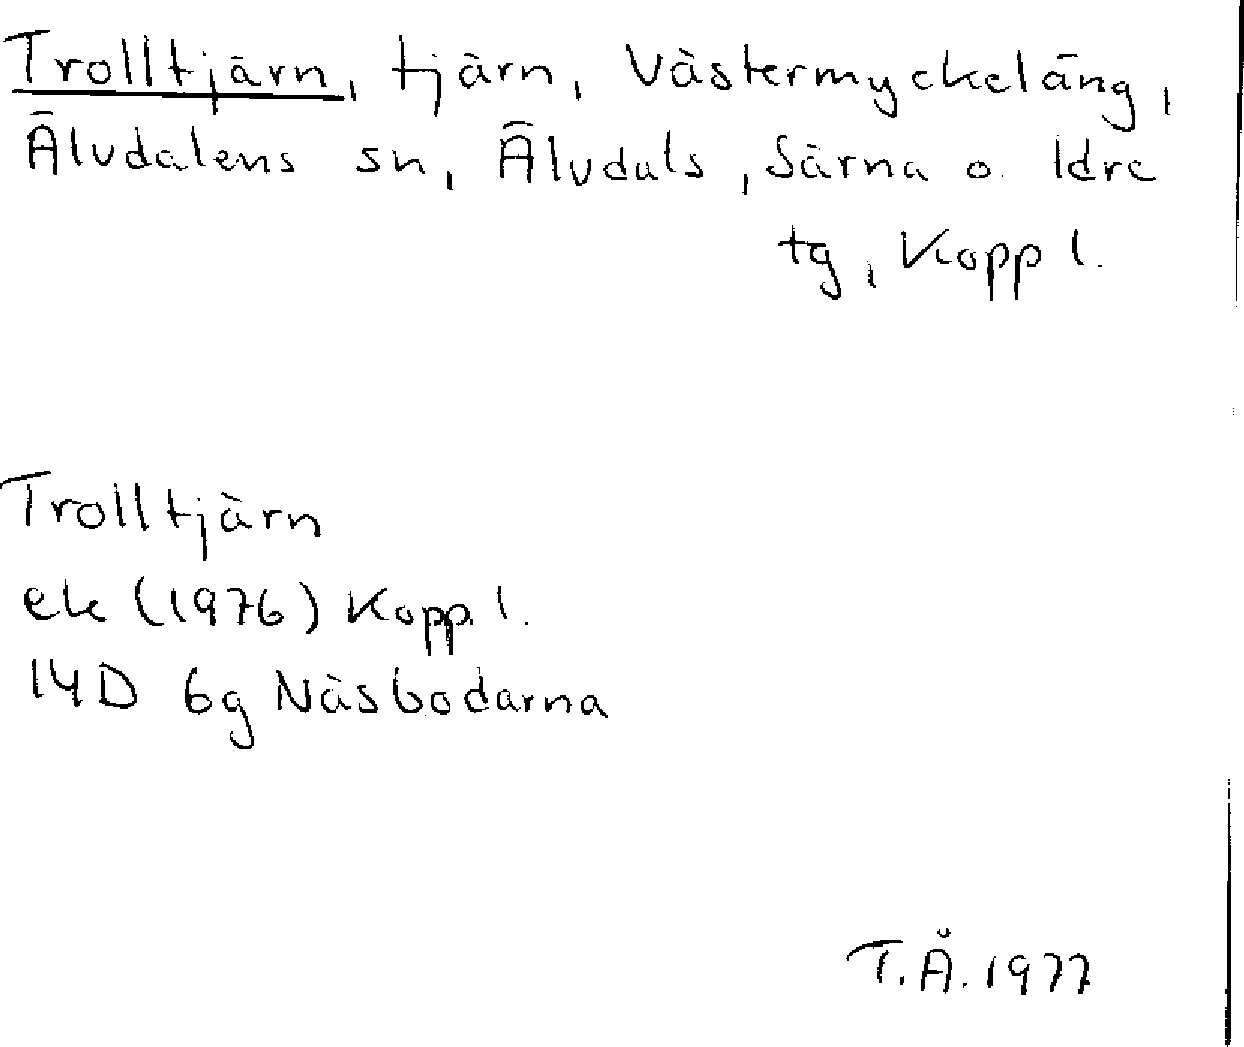 Trolltjärn, tjärn, Västermyckeläng,
Älvdalens sn, Älvdals, Särna o. Idre
tg, Kopp l.
Trolltjärn
ek (1976) Kopp. l.
14D 6g Näsbodarna
T.Å. 1977